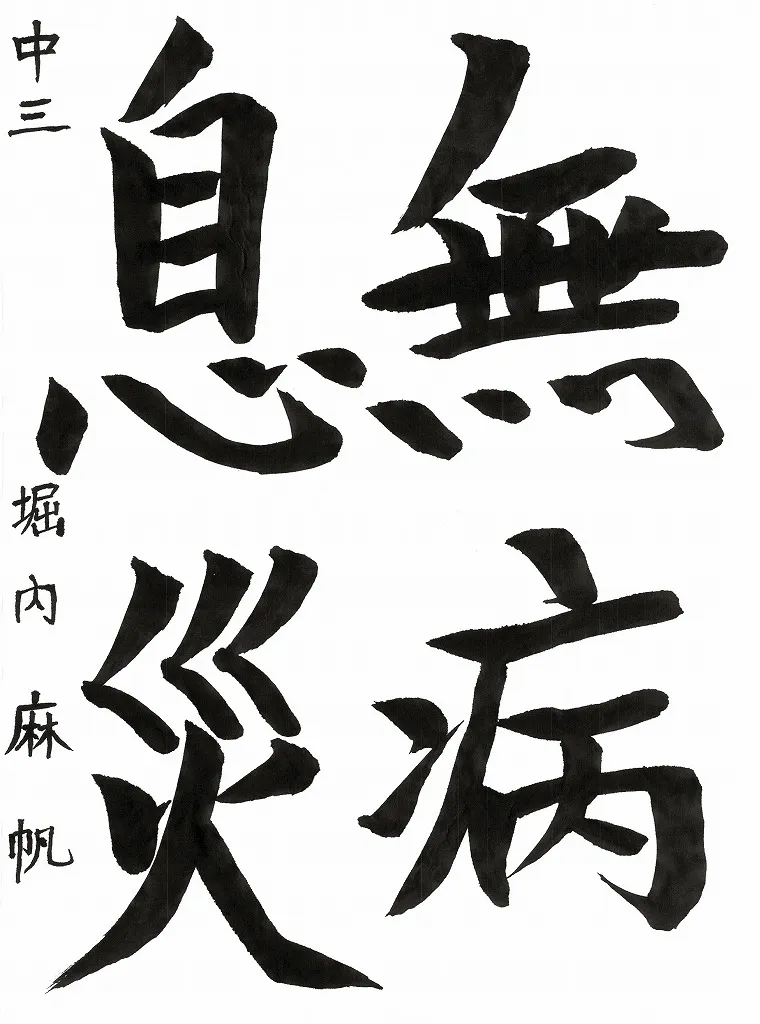 無病
息災
中三 堀内麻帆